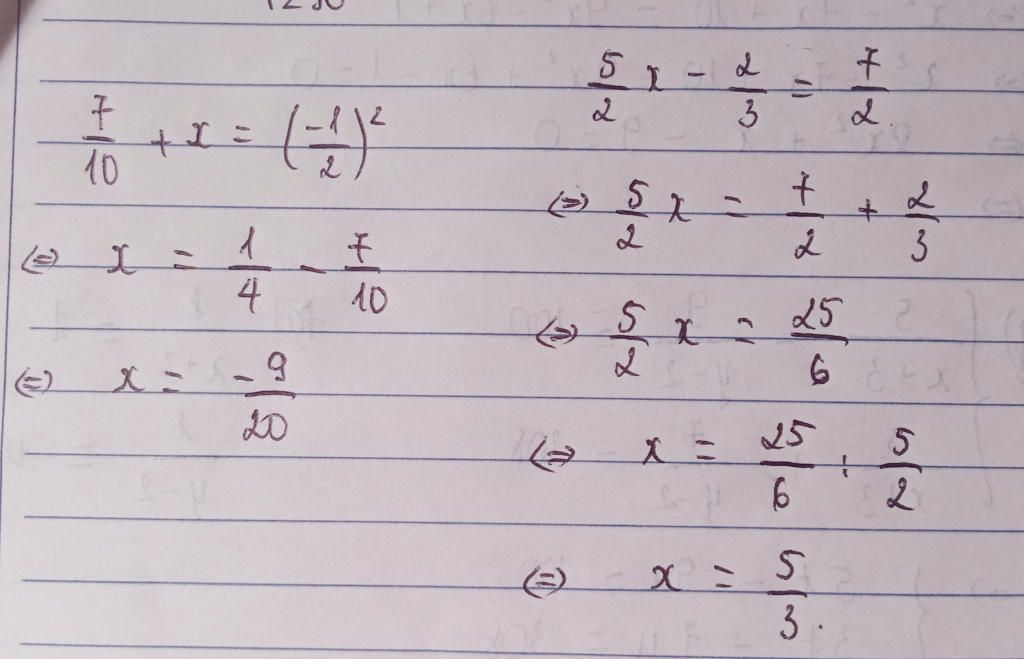 7/10 + x = (-1/2)²
⇔ x = 1/4 - 7/10
⇔ x = -9/20
5/2 x - 2/3 = 7/2.
⇔ 5/2 x = 7/2 + 2/3
⇔ 5/2 x = 25/6
⇔ x = 25/6 : 5/2
⇔ x = 5/3.